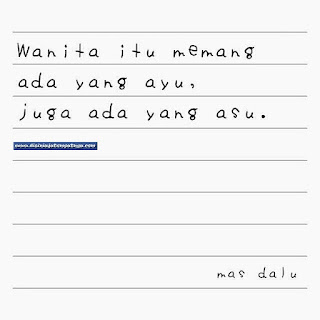 Wanita itu memang
ada yang ayu,
juga ada yang asu.
mas dalu